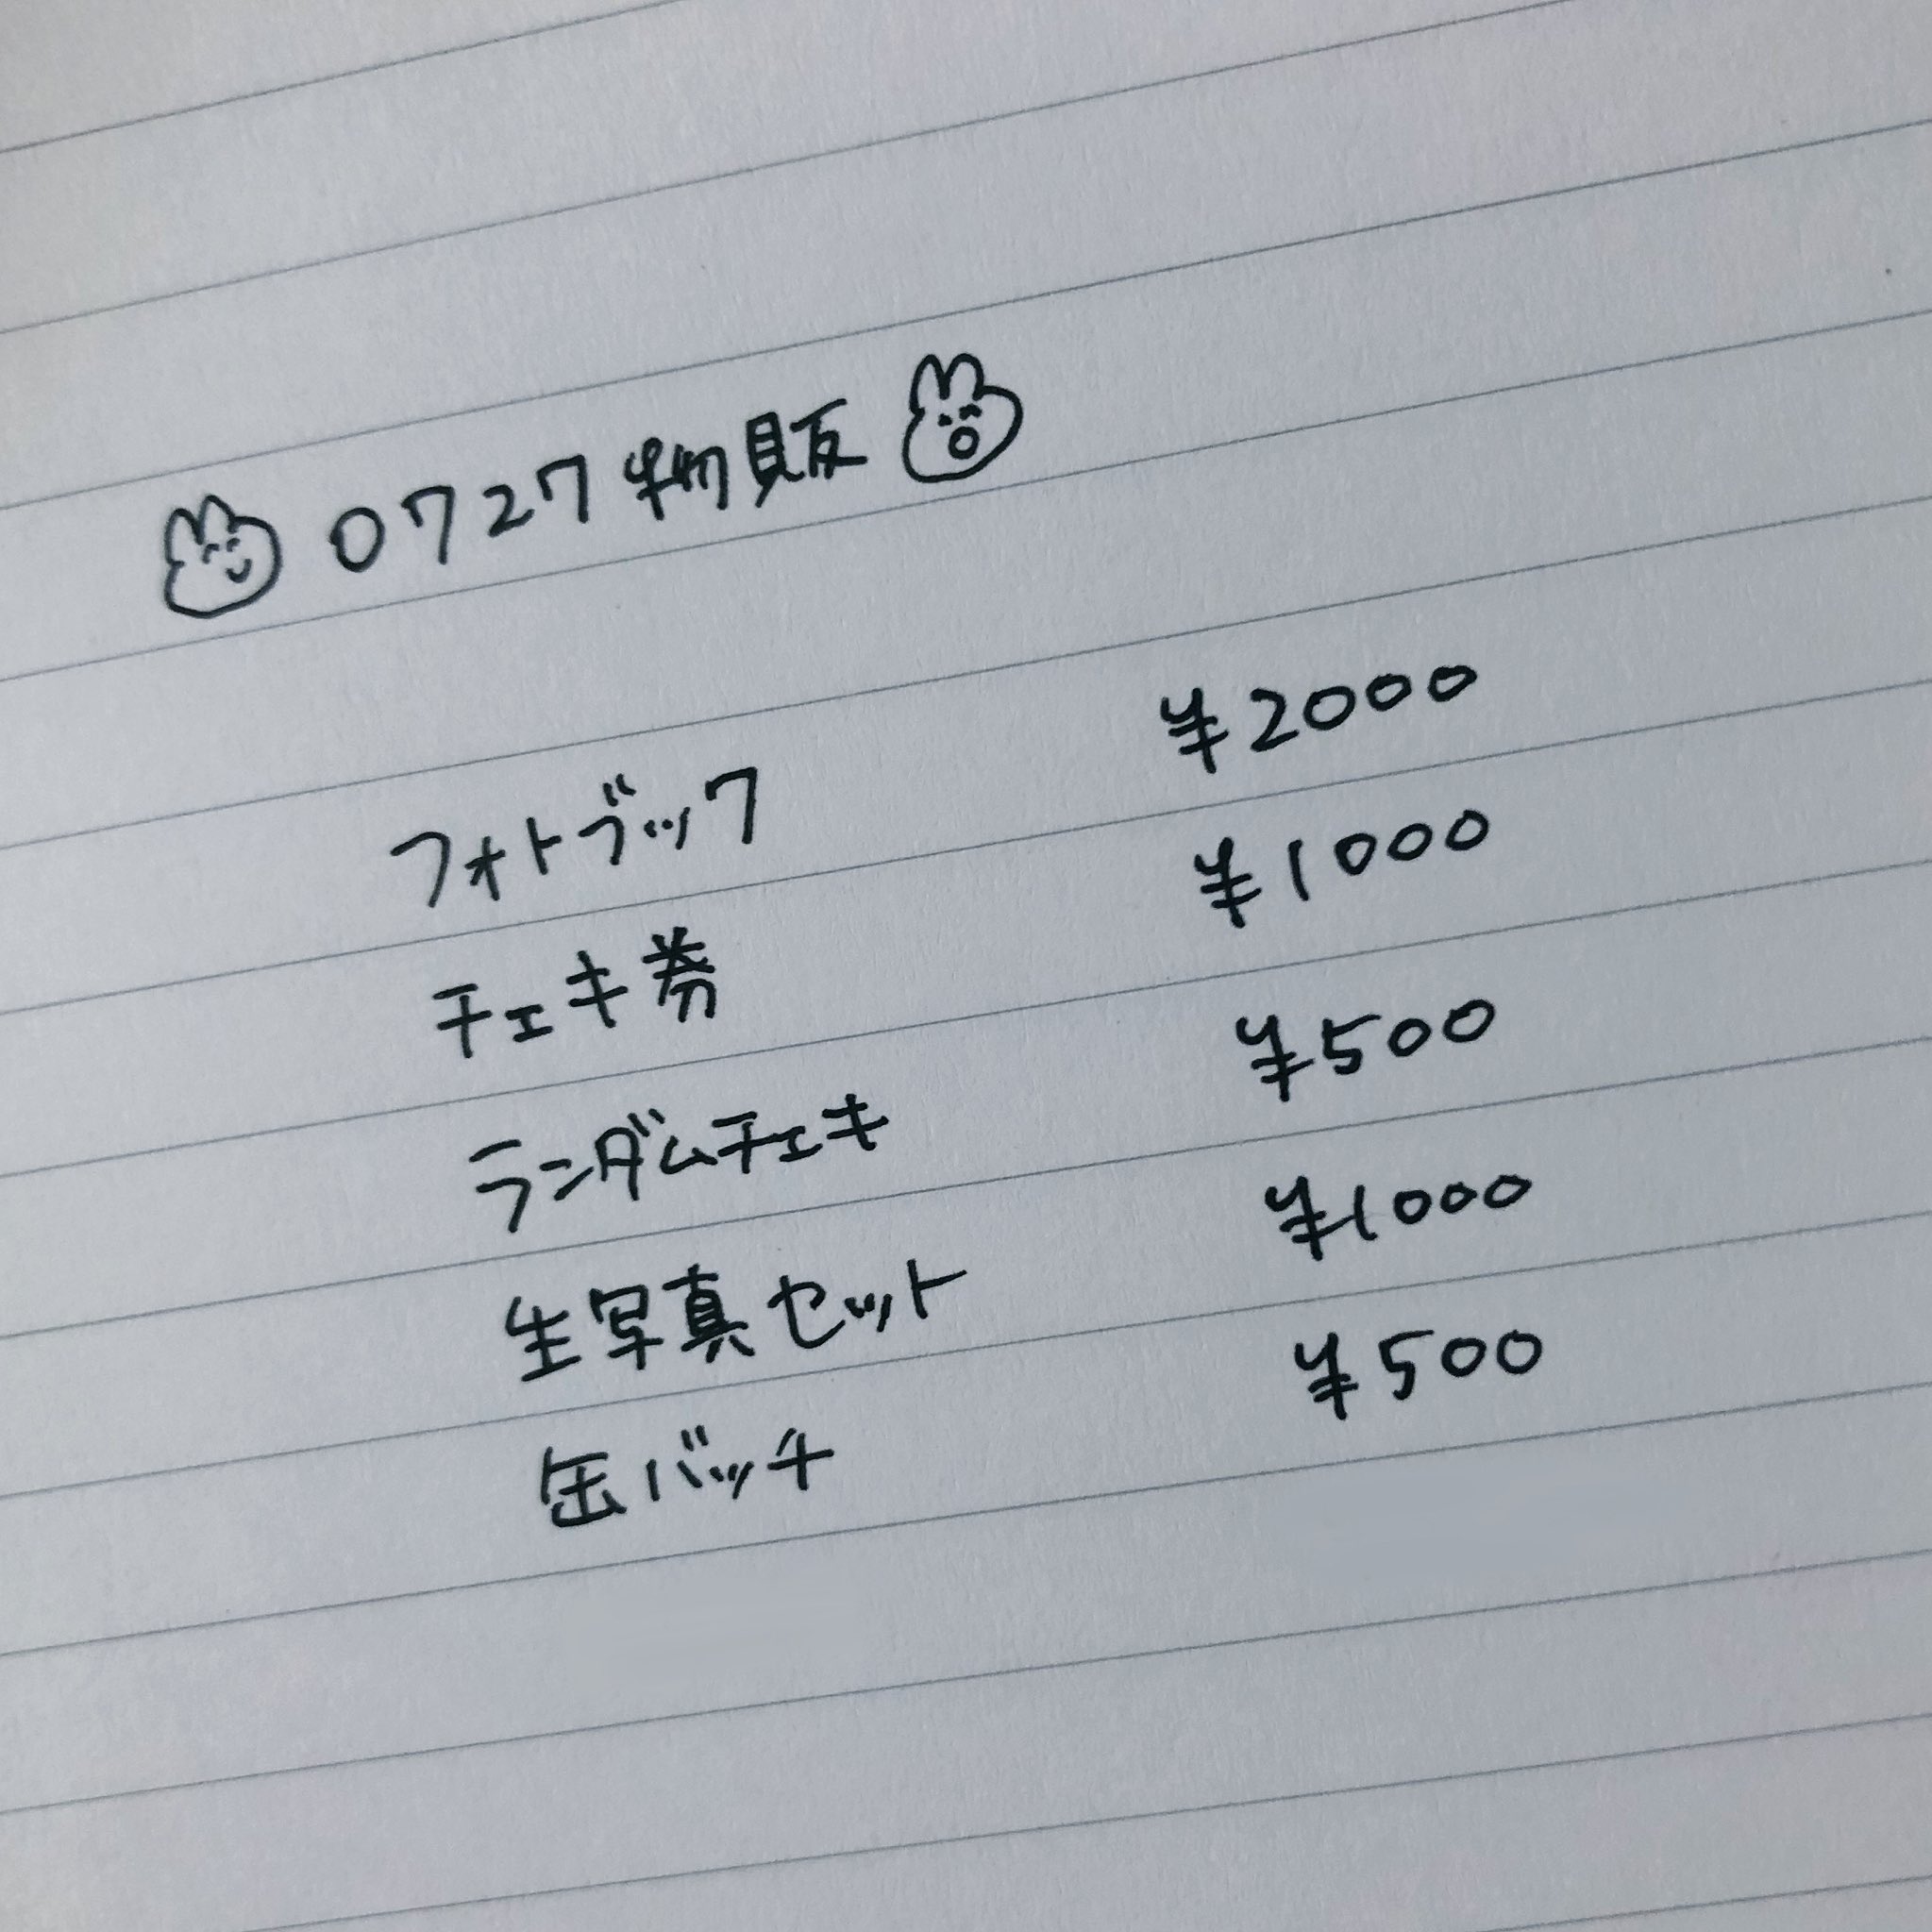 0727 物販
フォトブック ¥2000
チェキ券 ¥1000
ランダムチェキ ¥500
生写真セット ¥1000
缶バッチ ¥500